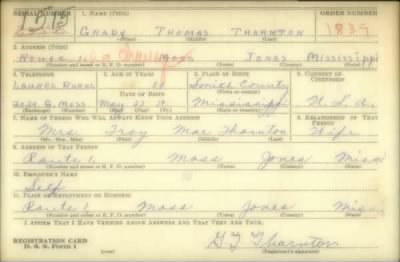 SERIAL NUMBER 1. NAME (Print) ORDER NUMBER
GRADY THOMAS THARNTON 1839
(First) (Middle) (Last)
2. ADDRESS (Print)
ROUTE 1 MOSS JONES MISSISSIPPI
(Number and street or R. F. D. number) (Town) (County) (State)
3. TELEPHONE 4. AGE IN YEARS 5. PLACE OF BIRTH 6. COUNTRY OF CITIZENSHIP
LAUREL RURAL SMITH COUNTY
(Town or county)
MISSISSIPPI U. S. A.
(Exchange) (Number) (Mo.) (Day) (Yr.) (State or country)
7. NAME OF PERSON WHO WILL ALWAYS KNOW YOUR ADDRESS 8. RELATIONSHIP OF THAT PERSON
Mrs. Troy Mae Tharnton Wife
(Mr., Mrs., Miss) (First) (Middle) (Last)
9. ADDRESS OF THAT PERSON
Route 1, Moss Jones Miss
(Number and street or R. F. D. number) (Town) (County) (State)
10. EMPLOYER'S NAME
Self
11. PLACE OF EMPLOYMENT OR BUSINESS
Route 1 Moss Jones Miss
(Number and street or R. F. D. number) (Town) (County) (State)
I AFFIRM THAT I HAVE VERIFIED ABOVE ANSWERS AND THAT THEY ARE TRUE.
REGISTRATION CARD
D. S. S. Form 1 G T Tharnton
(Registrant's signature)